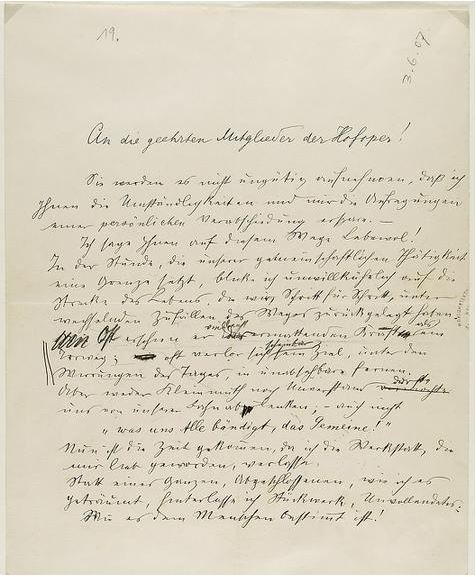 19.
3.6.07
An die geehrten Mitglieder der Hofoper!
Sie werden es nicht ungütig aufnehmen, daß ich
Ihnen die Umständlichkeiten und mir die Aufregungen
einer persönlichen Verabschiedung erspare. —
Ich sage Ihnen auf diesem Wege Lebewol!
In der Stunde, die unserer gemeinschaftlichen Thätigkeit
eine Grenze setzt, blicke ich unwillkührlich auf die
Strecke des Lebens, die wir, Schritt für Schritt, unter
wechselnden Zufällen des Weges zurückgelegt haben
Oft erschien er vielleicht der ermattenden Kraft als ein
Irrweg; oft verlor sich scheinbar sein Ziel, unter den
Wirrungen des Tages, in unabsehbare Fernen.
Aber weder Kleinmuth noch Unverstand durfte
uns von unserer Bahn ablenken; – auch nicht
„was uns Alle bändigt, das Gemeine!"
Nun ist die Zeit gekommen, da ich die Werkstatt, die
mir lieb geworden, verlasse.
Statt eines Ganzen, Abgeschlossenen, wie ich es
geträumt, hinterlasse ich Stückwerk, Unvollendetes:
Wie es dem Menschen bestimmt ist!